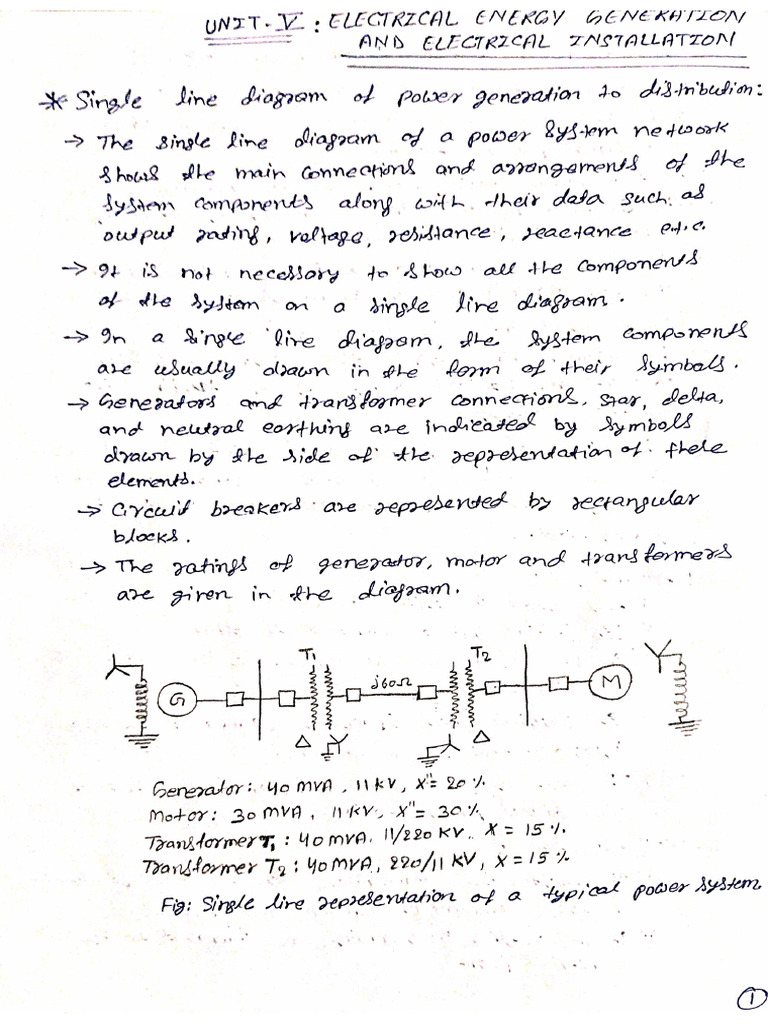 UNIT-V : ELECTRICAL ENERGY GENERATION
AND ELECTRICAL INSTALLATION
* Single line diagram of power generation to distribution:
→ The single line diagram of a power system network
shows the main connections and arrangements of the
system components along with their data such as
output rating, voltage, resistance, reactance e.t.c.
→ It is not necessary to show all the components
of the system on a single line diagram.
→ In a single line diagram, the system components
are usually drawn in the form of their symbols.
→ Generators and transformer connections, star, delta,
and neutral earthing are indicated by symbols
drawn by the side of the representation of these
elements.
→ Circuit breakers are represented by rectangular
blocks.
→ The ratings of generator, motor and transformers
are given in the diagram.
T1 T2
G j60Ω M
Δ Δ
Generator: 40 MVA, 11 kV, X"= 20 %
Motor: 30 MVA, 11 KV, X" = 30 %
Transformer T1 : 40 MVA, 11/220 KV, X = 15 %.
Transformer T2 : 40 MVA, 220/11 KV, X = 15 %
Fig: Single line representation of a typical power system
1